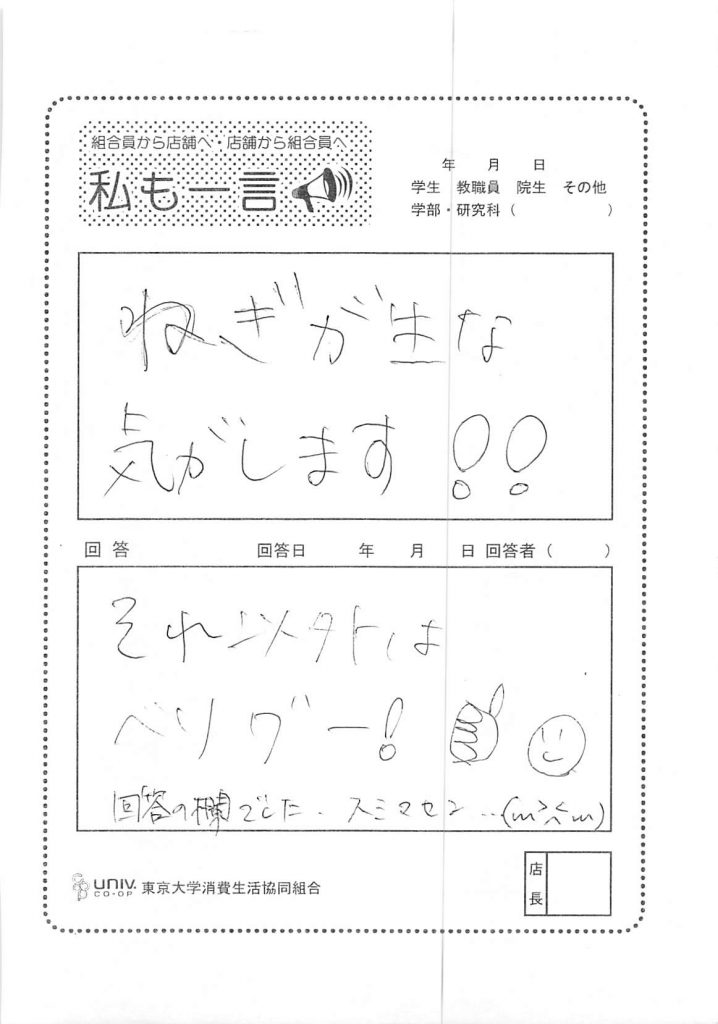 組合員から店舗へ・店舗から組合員へ
私も一言
年 月 日
学生 教職員 院生 その他
学部・研究科（ ）
ねぎが生な
気がします!!
回答 回答日 年 月 日 回答者（ ）
それ以外は
ベリグー!
回答の欄でした. スミマセン...(m><m)
店長
UNIV. CO-OP 東京大学消費生活協同組合